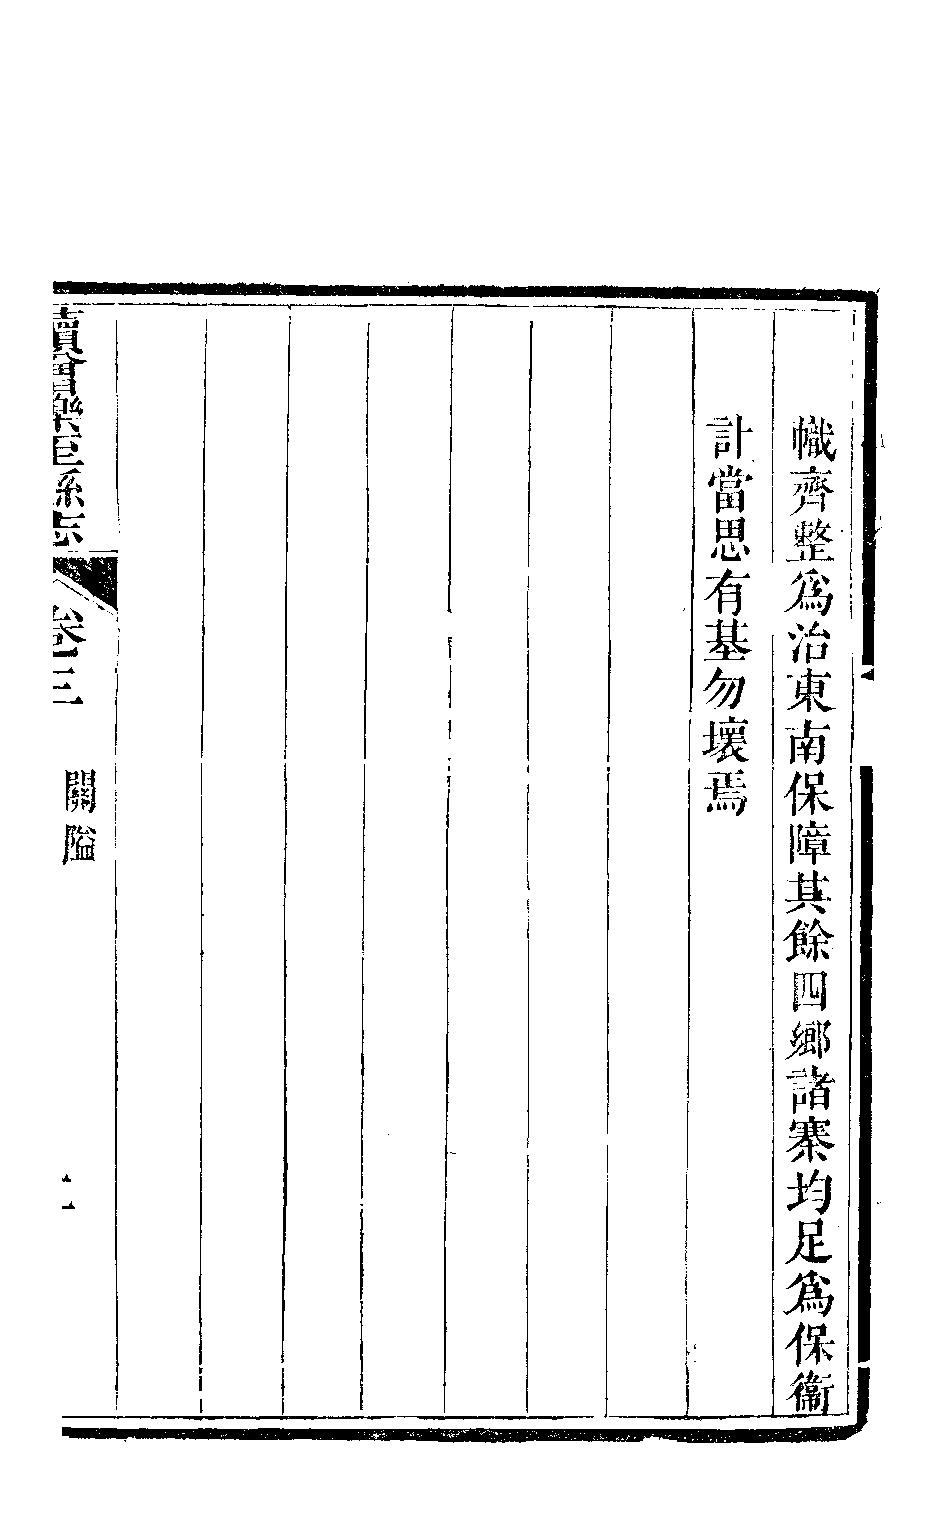 幟齊整爲治東南保障其餘四鄉諸寨均足爲保衞
計當思有基勿壞焉
續增樂至縣志
卷三
關隘